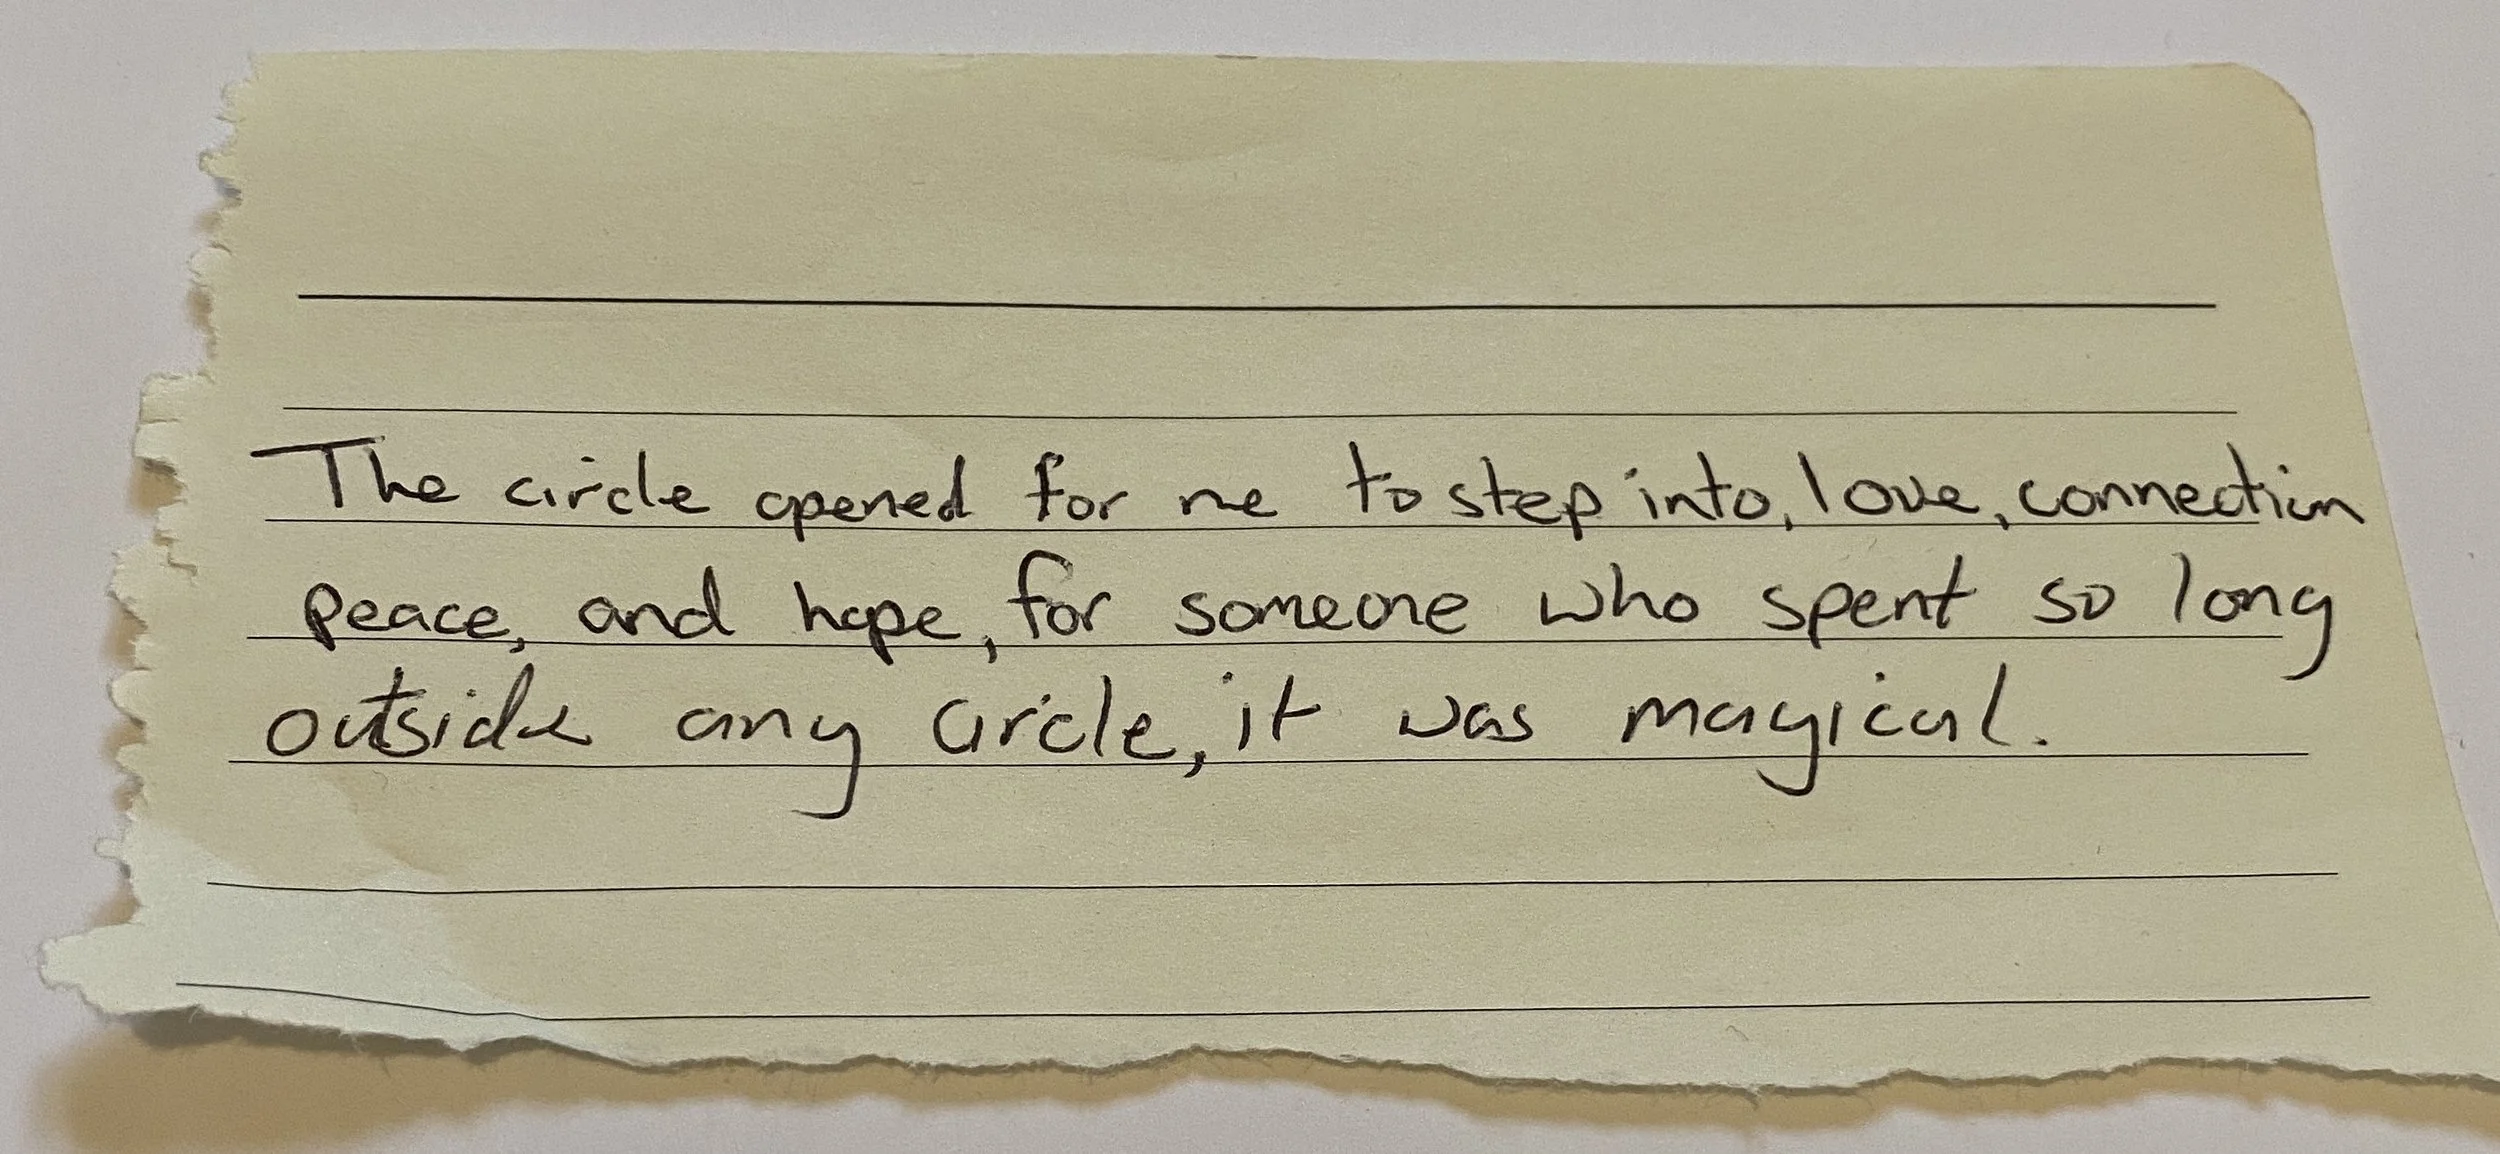 The circle opened for me to step into, love, connection
peace, and hope, for someone who spent so long
outside any circle, it was magical.